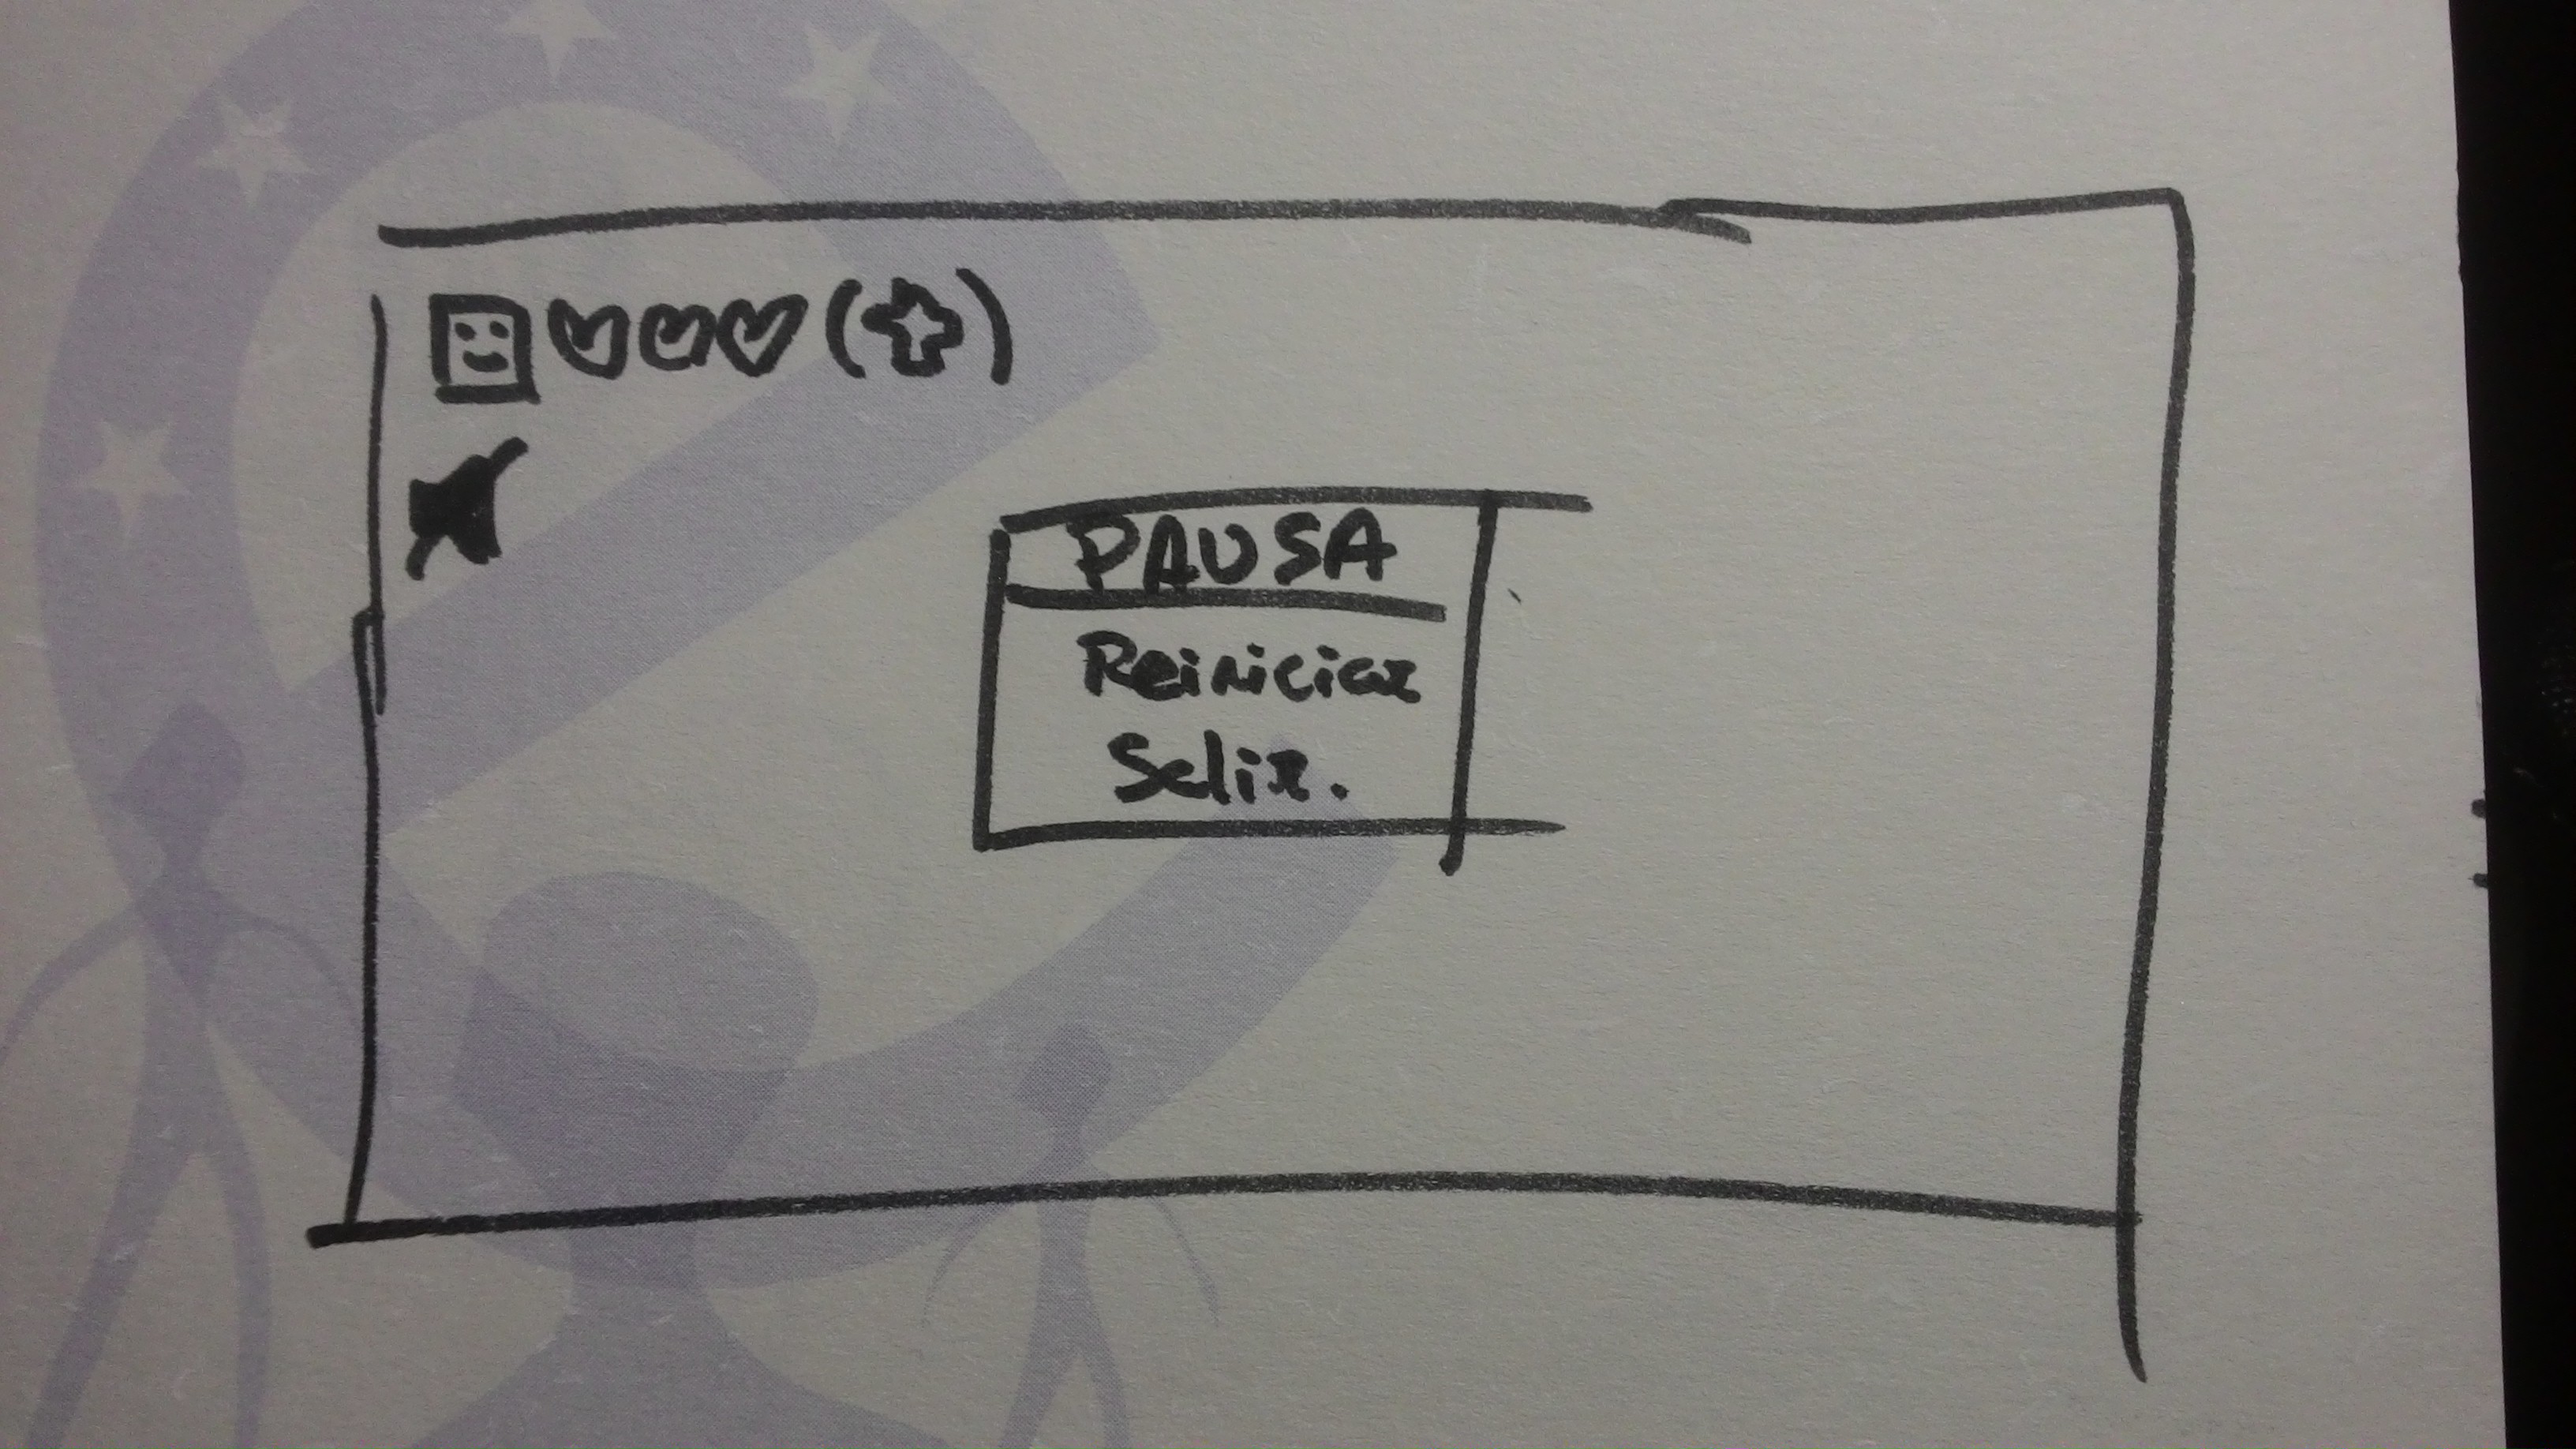 PAUSA
Reiniciar
Salir.